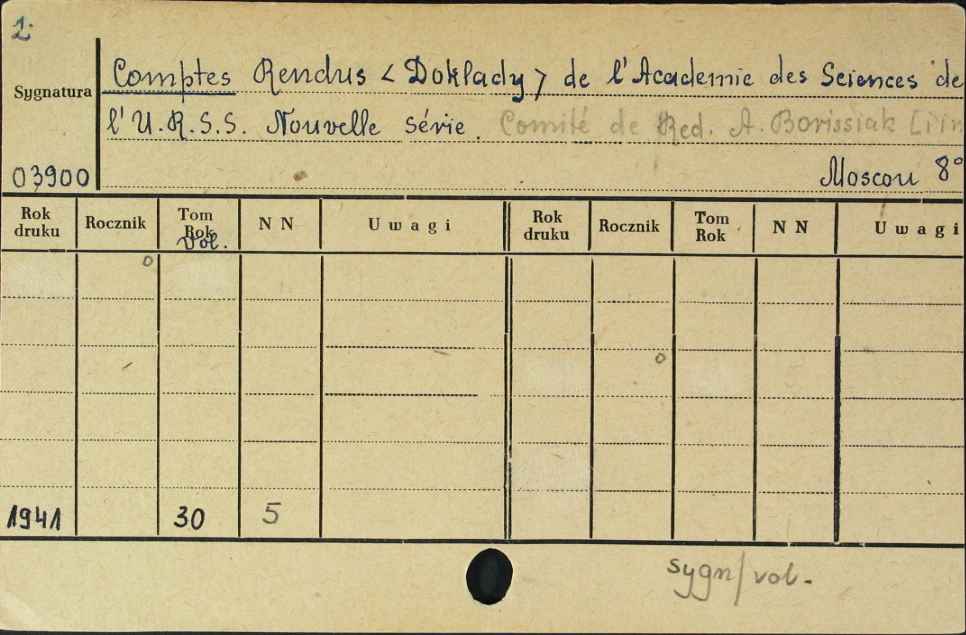 1.
Sygnatura Comptes Rendus < Doklady > de l'Academie des Sciences de
l'U.R.S.S. Nouvelle série. Comité de Red. A. Borissiak
03900 Moscou 8°
Rok druku Rocznik Tom Rok Vol. N N Uwagi Rok druku Rocznik Tom Rok N N Uwagi
1941 30 5
sygn/vol.